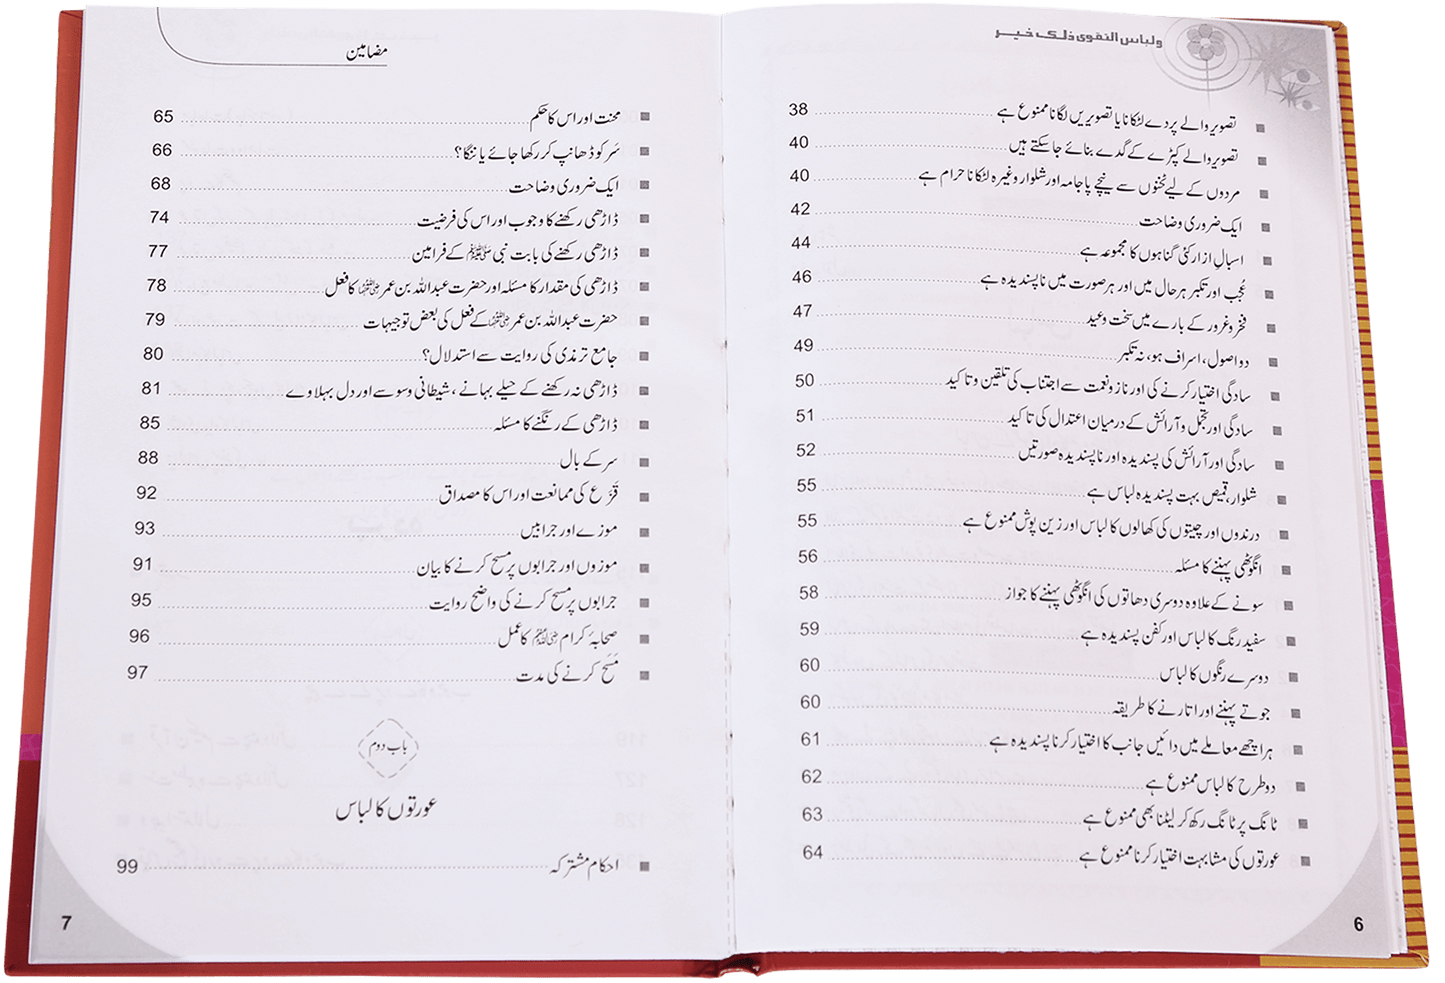 ولباس التقوى ذلك خير
تصویر والے پردے لٹکانا یا تصویریں لگانا ممنوع ہے 38
تصویر والے کپڑے کے گدے بنائے جاسکتے ہیں 40
مردوں کے لیے ٹخنوں سے نیچے پاجامہ اور شلوار وغیرہ لٹکانا حرام ہے 40
ایک ضروری وضاحت 42
اسبالِ ازار کئی گناہوں کا مجموعہ ہے 44
عُجب اور تکبر ہر حال میں اور ہر صورت میں ناپسندیدہ ہے 46
فخر و غرور کے بارے میں سخت وعید 47
دو اصول، اسراف ہو، نہ تکبر 49
سادگی اختیار کرنے کی اور ناز و نعمت سے اجتناب کی تلقین و تاکید 50
سادگی اور تجمل و آرائش کے درمیان اعتدال کی تاکید 51
سادگی اور آرائش کی پسندیدہ اور ناپسندیدہ صورتیں 52
شلوار، قمیص بہت پسندیدہ لباس ہے 55
درندوں اور چیتوں کی کھالوں کا لباس اور زین پوش ممنوع ہے 55
انگوٹھی پہننے کا مسئلہ 56
سونے کے علاوہ دوسری دھاتوں کی انگوٹھی پہننے کا جواز 58
سفید رنگ کا لباس اور کفن پسندیدہ ہے 59
دوسرے رنگوں کا لباس 60
جوتے پہننے اور اتارنے کا طریقہ 60
ہر اچھے معاملے میں دائیں جانب کا اختیار کرنا پسندیدہ ہے 61
دو طرح کا لباس ممنوع ہے 62
ٹانگ پر ٹانگ رکھ کر لیٹنا بھی ممنوع ہے 63
عورتوں کی مشابہت اختیار کرنا ممنوع ہے 64
6
مضامین
مخنث اور اس کا حکم 65
سَر کو ڈھانپ کر رکھا جائے یا ننگا؟ 66
ایک ضروری وضاحت 68
ڈاڑھی رکھنے کا وجوب اور اس کی فرضیت 74
ڈاڑھی رکھنے کی بابت نبی ﷺ کے فرامین 77
ڈاڑھی کی مقدار کا مسئلہ اور حضرت عبداللہ بن عمر رضی اللہ عنہما کا فعل 78
حضرت عبداللہ بن عمر رضی اللہ عنہما کے فعل کی بعض توجیہات 79
جامع ترمذی کی روایت سے استدلال؟ 80
ڈاڑھی نہ رکھنے کے حیلے بہانے، شیطانی وسوسے اور دل بہلاوے 81
ڈاڑھی کے رنگنے کا مسئلہ 85
سر کے بال 88
قَزَع کی ممانعت اور اس کا مصداق 92
موزے اور جرابیں 93
موزوں اور جرابوں پر مسح کرنے کا بیان 91
جرابوں پر مسح کرنے کی واضح روایت 95
صحابۂ کرام رضی اللہ عنہم کا عمل 96
مَسح کرنے کی مدت 97
باب دوم
عورتوں کا لباس
احکام مشترکہ 99
7